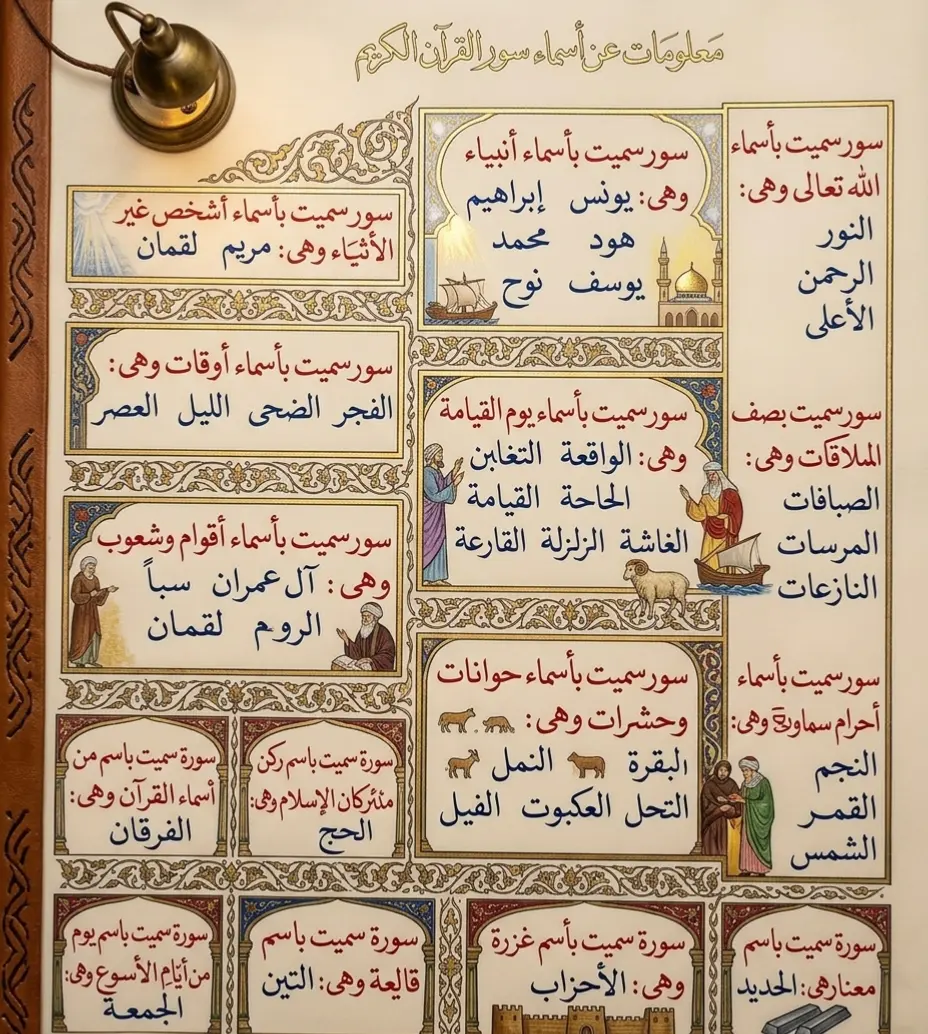 معلومات عن أسماء سور القرآن الكريم
سور سميت بأسماء
الله تعالى وهى:
النور
الرحمن
الأعلى
سور سميت بصف
الملاقات وهى:
الصبافات
المرسات
النازعات
سور سميت بأسماء
أحرام سماوية وهى:
النجم
القمر
الشمس
سور سميت بأسماء أنبياء
وهى: يونس إبراهيم
هود محمد
يوسف نوح
سور سميت بأسماء يوم القيامة
وهى: الواقعة التغابن
الحاحة القيامة
الغاشة الزلزلة القارعة
سور سميت بأسماء حوانات
وحشرات وهى:
البقرة النمل
التحل العكبوت الفيل
سور سميت بأسماء أشخص غير
الأثيَاء وهى: مريم لقمان
سور سميت بأسماء أوقات وهى:
الفجر الضحى الليل العصر
سور سميت بأسماء أقوام وشعوب
وهى: آل عمران سبأ
الروم لقمان
سورة سميت باسم ركن
مئركان الإسلام وهى:
الحج
سورة سميت باسم من
أسماء القرآن وهى:
الفرقان
سورة سميت باسم
معنارهى: الحديد
سورة سميت بأسم غزرة
وهى: الأحزاب
سورة سميت باسم
قالعة وهى: التين
سورة سميت باسم يوم
من أيَام الأسوع وهى:
الجمعة